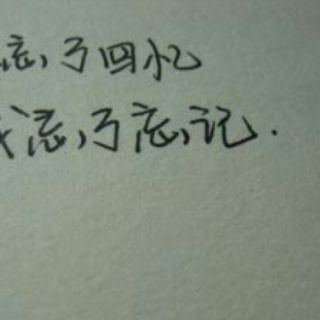 忘了回忆
我忘了忘记.